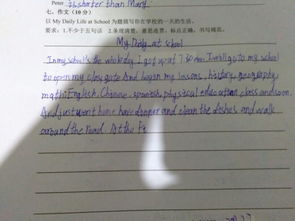 Peter is shorter than Mary.
七、作文（10分）
以 My Daily Life at School 为题描写你在学校的一天的生活。
要求：1.不少于五句话 2.条理清楚，语意连贯，标点正确，书写规范。
My Daily at school
In my school's the whole day, I get up at to my school
to open my class And began my lessons, history, geography
math, English, Chinese, spanish, physical education class and soon.
And just went home have dinner and clean the dishes and walk
around the road. At the